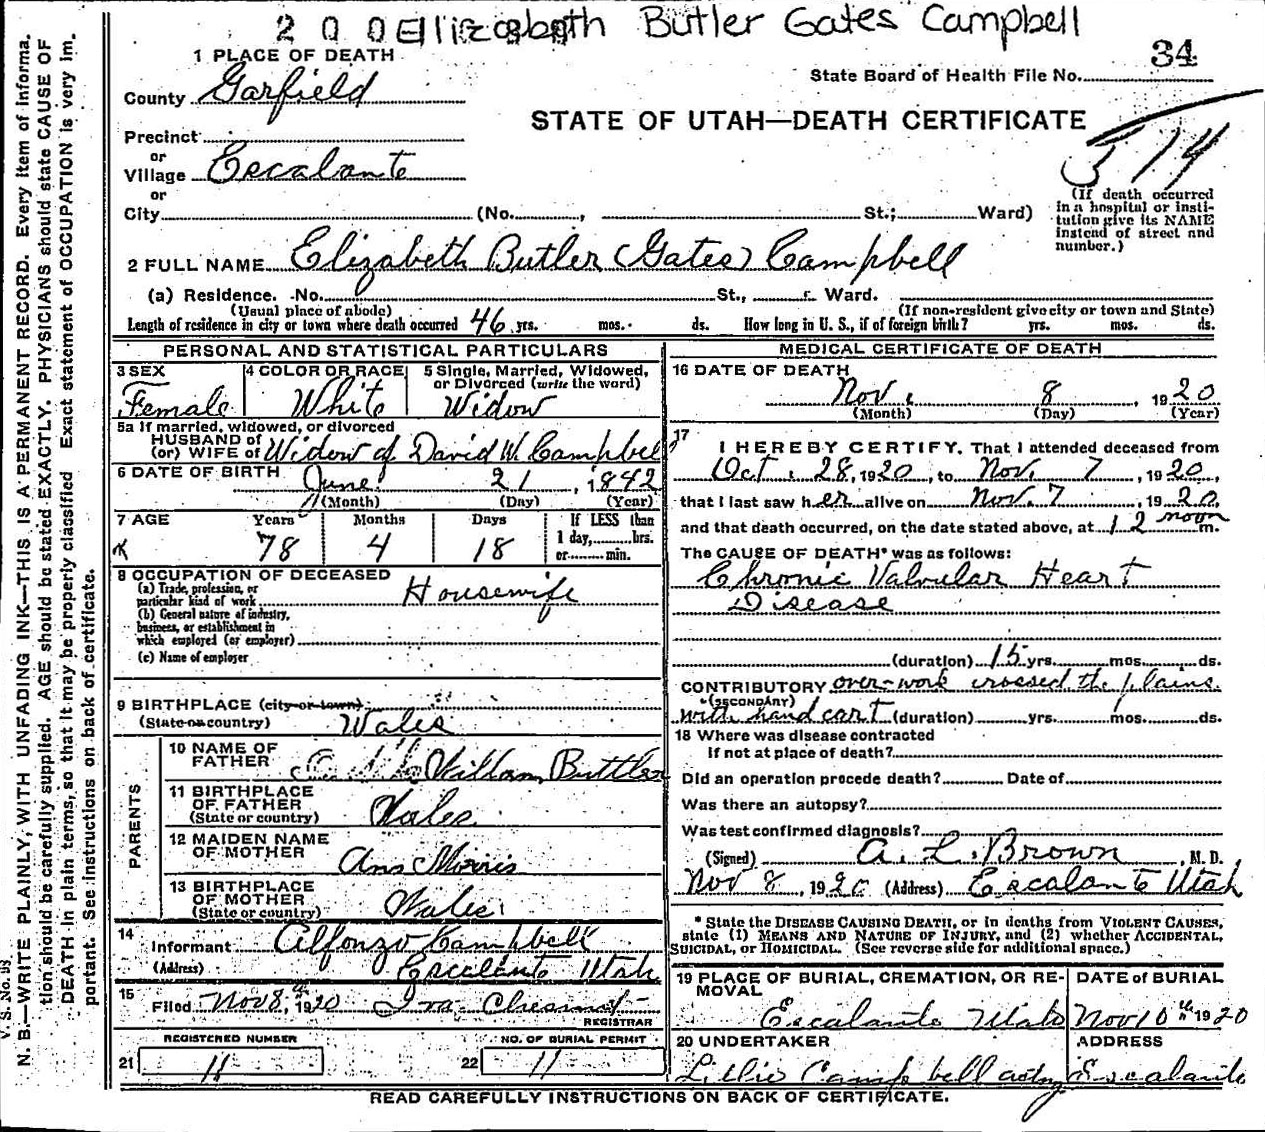 200 Elizabeth Butler Gates Campbell
34
1 PLACE OF DEATH
State Board of Health File No.
County Garfield
STATE OF UTAH—DEATH CERTIFICATE
514
Precinct
or
Village Escalante
or
City (No. , St.; Ward)
(If death occurred in a hospital or institution give its NAME instead of street and number.)
2 FULL NAME Elizabeth Butler (Gates) Campbell
(a) Residence. No. St., Ward.
(Usual place of abode) (If non-resident give city or town and State)
Length of residence in city or town where death occurred 46 yrs. mos. ds. How long in U. S., if of foreign birth? yrs. mos. ds.
PERSONAL AND STATISTICAL PARTICULARS
3 SEX
Female
4 COLOR OR RACE
White
5 Single, Married, Widowed, or Divorced (write the word)
Widow
5a If married, widowed, or divorced
HUSBAND of
(or) WIFE of Widow of David W. Campbell
6 DATE OF BIRTH
June 21, 1842
(Month) (Day) (Year)
7 AGE Years Months Days If LESS than
1 day, hrs.
or min.
78 4 18
8 OCCUPATION OF DECEASED
(a) Trade, profession, or
particular kind of work Housewife
(b) General nature of industry,
business, or establishment in
which employed (or employer)
(c) Name of employer
9 BIRTHPLACE (city or town)
(State or country) Wales
PARENTS
10 NAME OF
FATHER William Buttler
11 BIRTHPLACE
OF FATHER
(State or country) Wales
12 MAIDEN NAME
OF MOTHER Ann Morris
13 BIRTHPLACE
OF MOTHER
(State or country) Wales
14
Informant Alfonzo Campbell
(Address) Escalante Utah
15
Filed Nov 8th, 1920
REGISTRAR
REGISTERED NUMBER
21 11
NO. OF BURIAL PERMIT
22 11
MEDICAL CERTIFICATE OF DEATH
16 DATE OF DEATH
Nov. 8, 1920
(Month) (Day) (Year)
17
I HEREBY CERTIFY, That I attended deceased from
Oct. 28, 1920, to Nov. 7, 1920,
that I last saw her alive on Nov. 7, 1920,
and that death occurred, on the date stated above, at 12 noon m.
The CAUSE OF DEATH* was as follows:
Chronic Valvular Heart
Disease
(duration) 15 yrs. mos. ds.
CONTRIBUTORY over-work crossed the plains
(SECONDARY)
with hand cart (duration) yrs. mos. ds.
18 Where was disease contracted
if not at place of death?
Did an operation precede death? Date of
Was there an autopsy?
Was test confirmed diagnosis?
(Signed) A. L. Brown, M. D.
Nov 8, 1920 (Address) Escalante Utah
* State the DISEASE CAUSING DEATH, or in deaths from VIOLENT CAUSES,
state (1) MEANS AND NATURE OF INJURY, and (2) whether ACCIDENTAL,
SUICIDAL, or HOMICIDAL. (See reverse side for additional space.)
19 PLACE OF BURIAL, CREMATION, OR REMOVAL
Escalante Utah
DATE OF BURIAL
Nov 10th 1920
20 UNDERTAKER
Lillie Campbell actng
ADDRESS
Escalante
READ CAREFULLY INSTRUCTIONS ON BACK OF CERTIFICATE.
N. B.—WRITE PLAINLY, WITH UNFADING INK—THIS IS A PERMANENT RECORD. Every item of informa-
tion should be carefully supplied. AGE should be stated EXACTLY. PHYSICIANS should state CAUSE OF
DEATH in plain terms, so that it may be properly classified. Exact statement of OCCUPATION is very im-
portant. See instructions on back of certificate.